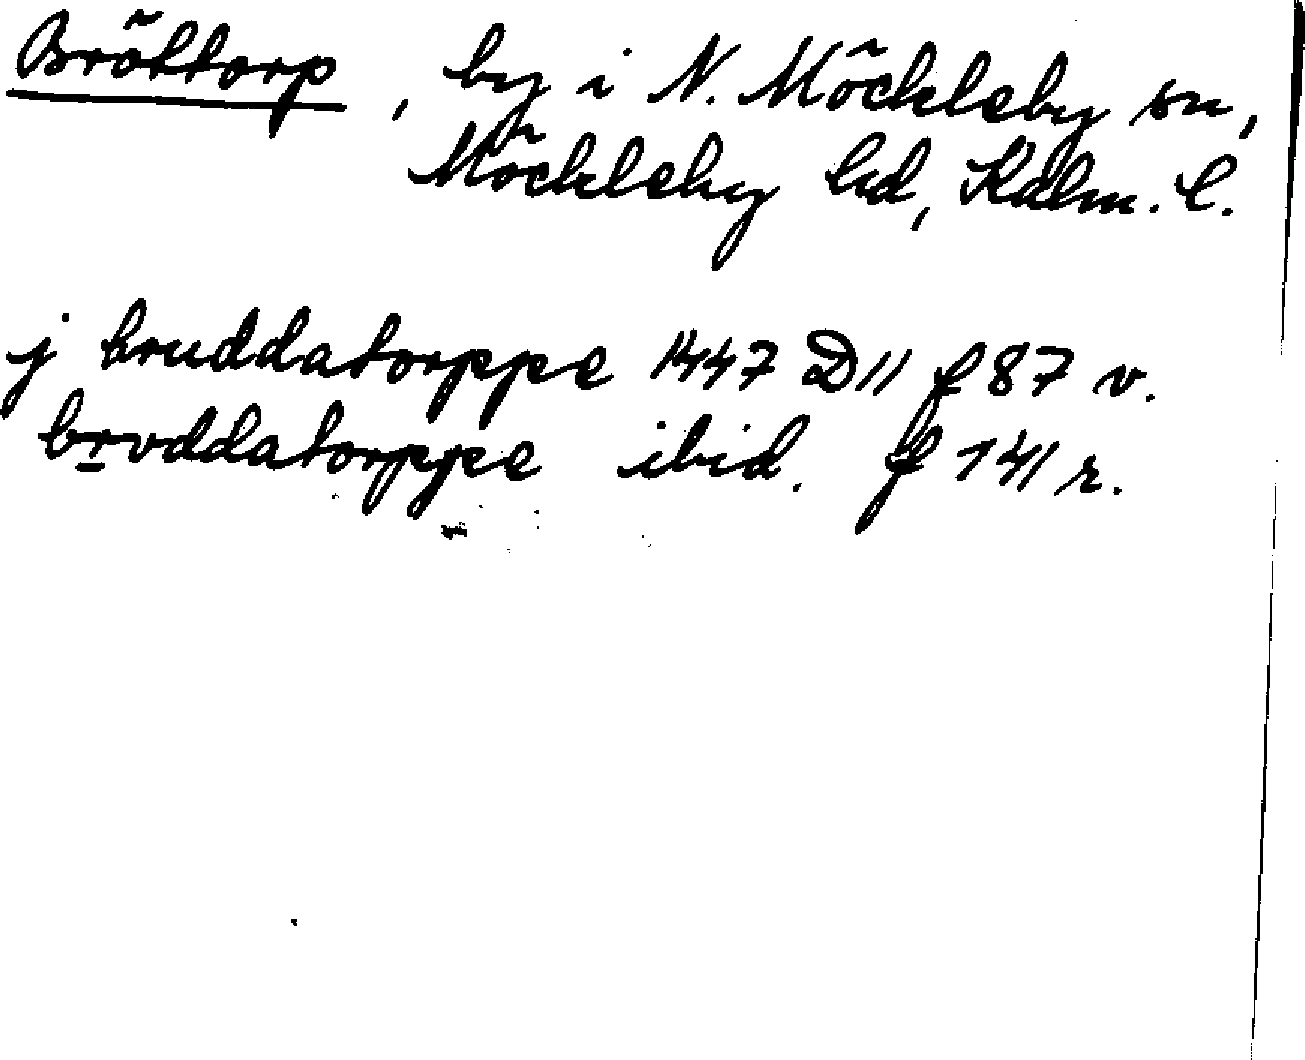 Bröttorp, by i N. Möckleby sn,
Möckleby hd, Kalm. l.
j bruddatorppe 1447 D11 f 87 v.
brvddatorppe ibid. f 141 r.